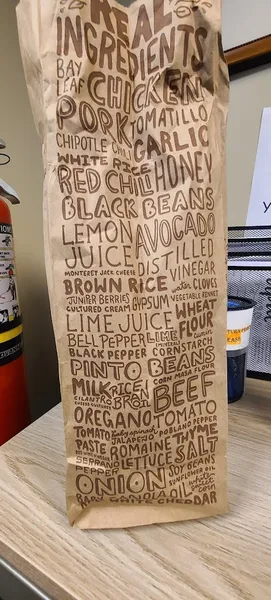 REAL
INGREDIENTS
BAY LEAF CHICKEN
PORK TOMATILLO
CHIPOTLE CHILI GARLIC
WHITE RICE
RED CHILI HONEY
BLACK BEANS
LEMON AVOCADO
JUICE DISTILLED
MONTEREY JACK CHEESE VINEGAR
BROWN RICE water CLOVES
JUNIPER BERRIES GYPSUM VEGETABLE RENNET
CULTURED CREAM WHEAT
LIME JUICE FLOUR
BELL PEPPER LIME cumin
BLACK PEPPER CORNSTARCH
PINTO BEANS
CORN MASA FLOUR
MILK RICE BEEF
CILANTRO BRAN OIL
CHEESE CULTURES
OREGANO TOMATO
TOMATO baby spinach POBLANO PEPPER
PASTE JALAPEÑO THYME
RED ROMAINE SALT
SERRANO LETTUCE SOY BEANS
PEPPER SUNFLOWER OIL
ONION white sweet corn
BABY CANOLA OIL CHEDDAR